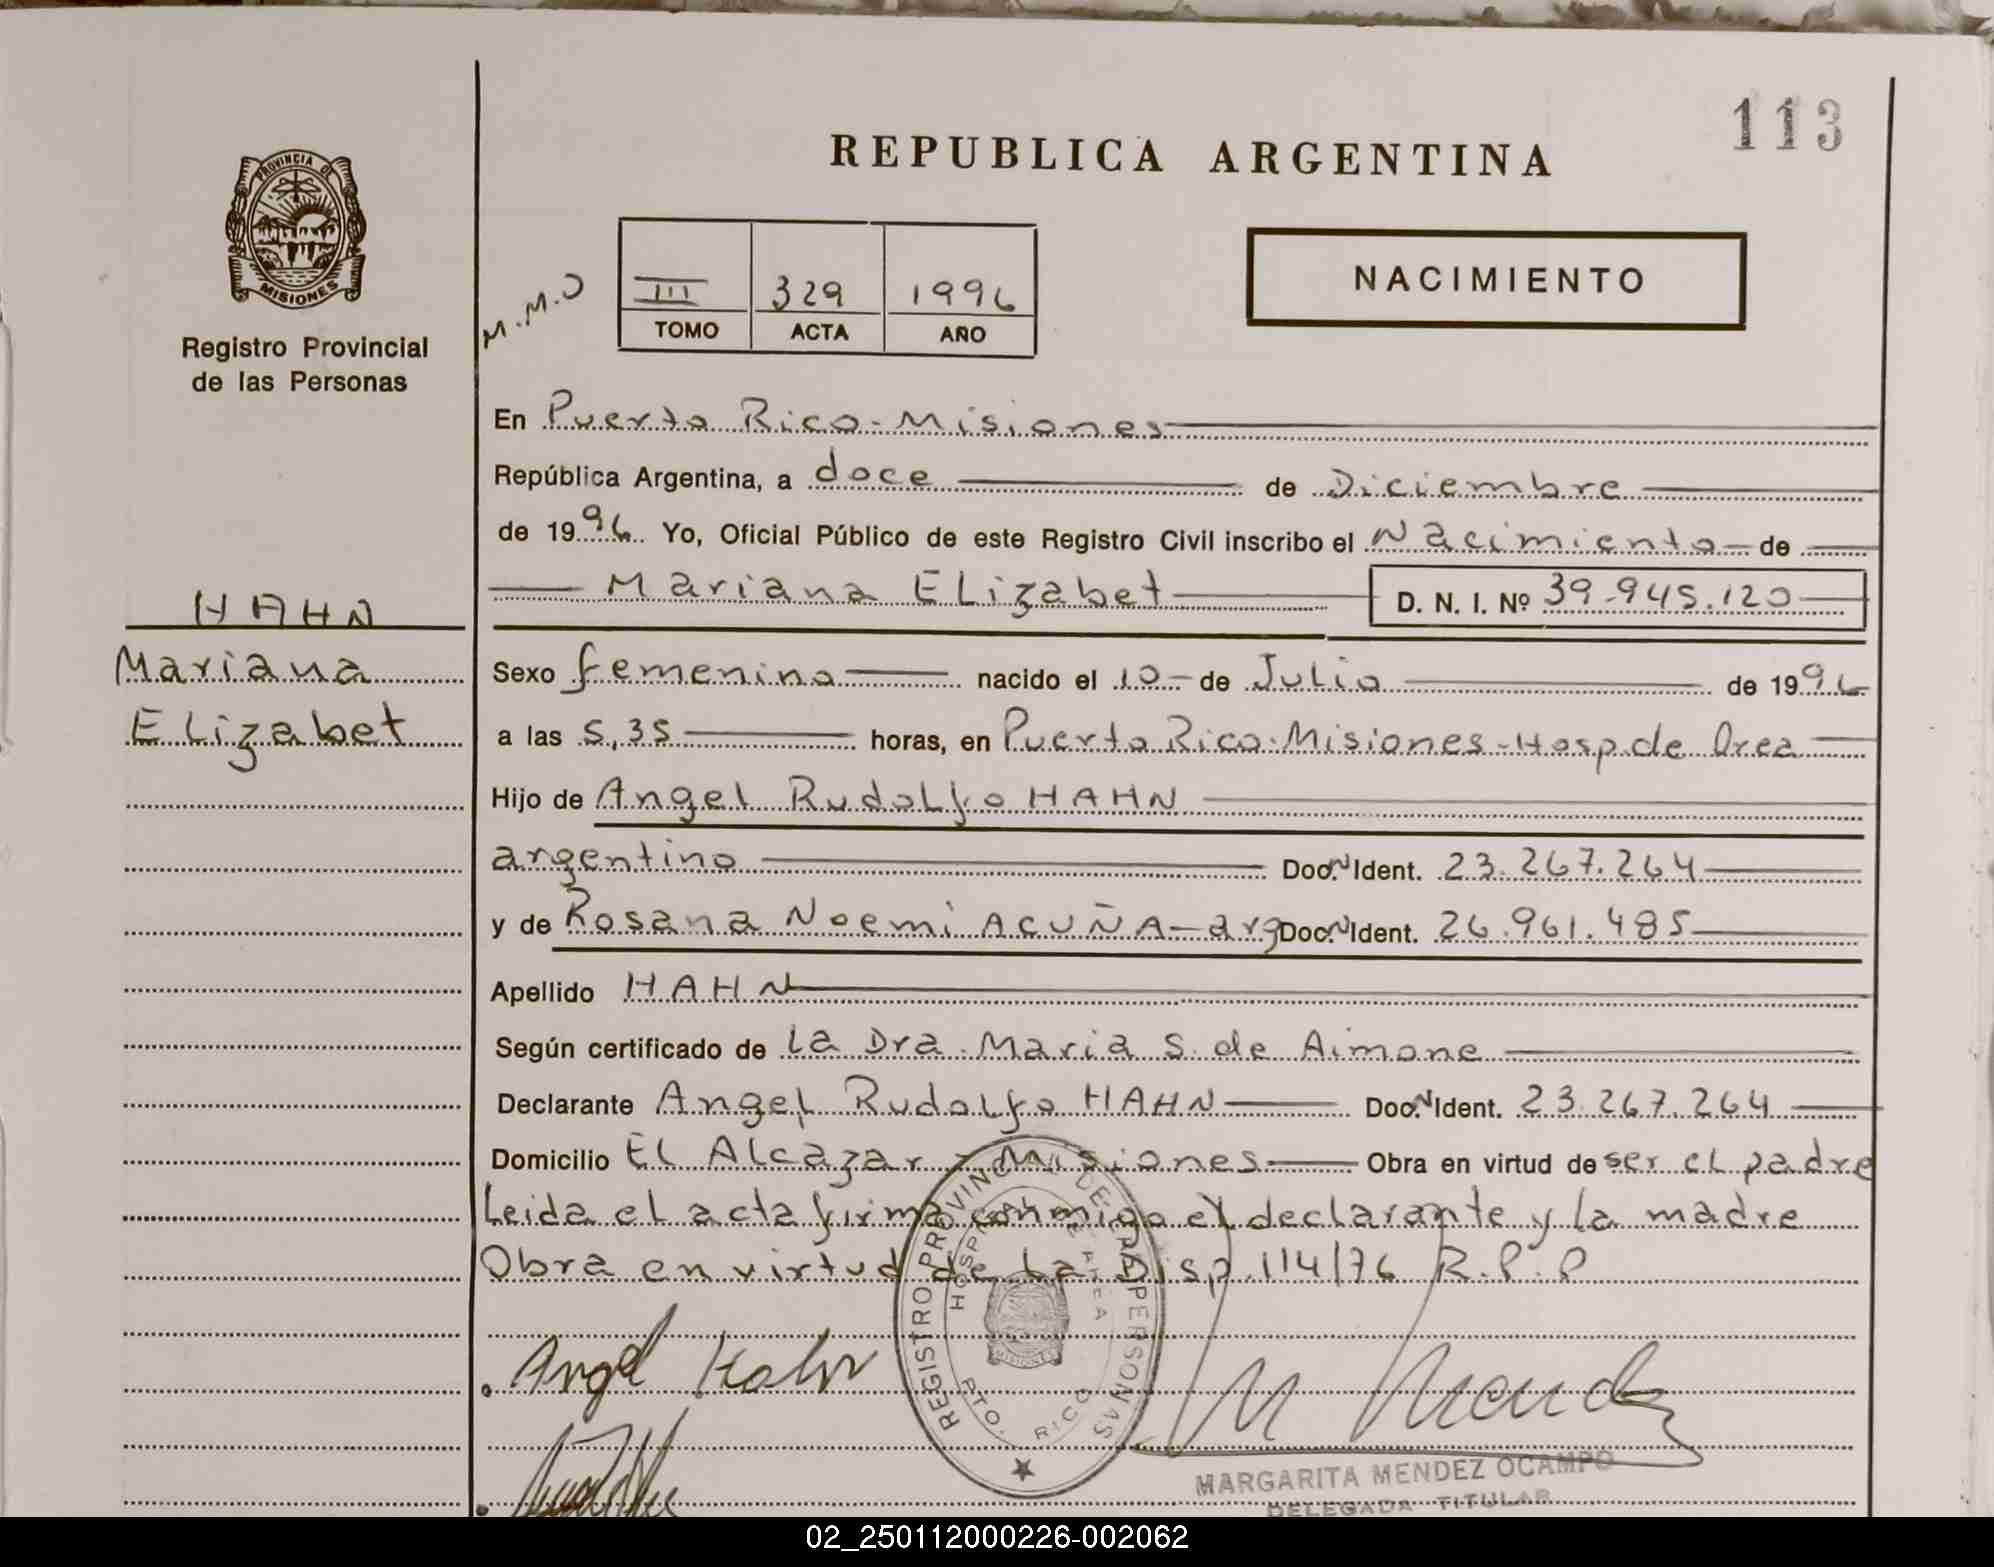 113
REPUBLICA ARGENTINA
PROVINCIA DE
MISIONES
Registro Provincial
de las Personas
M.M.O
III 329 1996
TOMO ACTA AÑO
NACIMIENTO
En Puerto Rico - Misiones
República Argentina, a doce de Diciembre
de 1996 Yo, Oficial Público de este Registro Civil inscribo el Nacimiento de
Mariana ELizabet D. N. I. Nº 39.945.120
HAHN
Mariana
ELizabet
Sexo femenino nacido el 10 de Julio de 1996
a las 5,35 horas, en Puerto Rico - Misiones - Hosp. de Area
Hijo de Angel Rudolfo HAHN
argentino Doc. Ident. 23.267.264
y de Rosana Noemi ACUÑA - arg Doc. Ident. 26.961.485
Apellido HAHN
Según certificado de La Dra. Maria S. de Aimone
Declarante Angel Rudolfo HAHN Doc. Ident. 23.267.264
Domicilio El Alcazar - Misiones Obra en virtud de ser el padre
Leida el acta firma conmigo el declarante y la madre
Obra en virtud de La Disp. 114/76 R.P.P
REGISTRO PROVINCIAL DE LAS PERSONAS
HOSPITAL DE AREA
MISIONES
PTO. RICO
Angel Hahn
M Mendez
MARGARITA MENDEZ OCAMPO
DELEGADA TITULAR
02_250112000226-002062